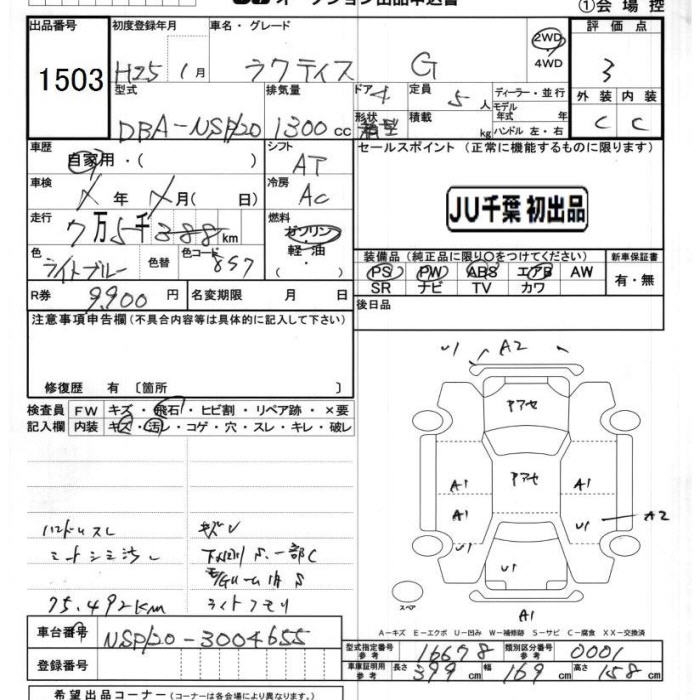 オークション出品申込書
①会場控
出品番号 初度登録年月 車名・グレード 評価点
1503 H25 1月 ラクティス G 2WD 4WD 3
型式 排気量 ドア 4 定員 5人 ディーラー・並行 外装 内装
DBA-NSP120 1300cc 形状 箱型 積載 kg モデル年式 年 ハンドル 左・右 C C
車歴 シフト セールスポイント (正常に機能するものに限ります)
自家用・( ) AT
車検 冷房
年 月( ) AC JU千葉 初出品
走行 燃料
7万5千388km ガソリン
軽・油
色 色替 色コード 装備品(純正品に限り○をつけてください) 新車保証書
ライトブルー 857 PS PW ABS エアB AW 有・無
SR ナビ TV カワ
R券 9,900円 名変期限 月 日 後日品
注意事項申告欄(不具合内容等は具体的に記入して下さい)
修復歴 有 〔箇所 〕
検査員 FW キズ・飛石・ヒビ割・リペア跡・×要
記入欄 内装 キズ・汚レ・コゲ・穴・スレ・キレ・破レ
U1 A2
アアセ
アアセ
A1 A1
A1 U1 A2
U1 U1
スペア
A1
ハンドルスレ キズU
シートシミ汚レ
75.492km
A-キズ E-エクボ U-凹み W-補修跡 S-サビ C-腐食 XX-交換済
車台番号 NSP120-3004655
型式指定番号 参考 16678 類別区分番号 参考 0001
登録番号 車庫証明用 参考 長さ 399cm 幅 169cm 高さ 158cm
希望出品コーナー(コーナーは各会場により異なります)